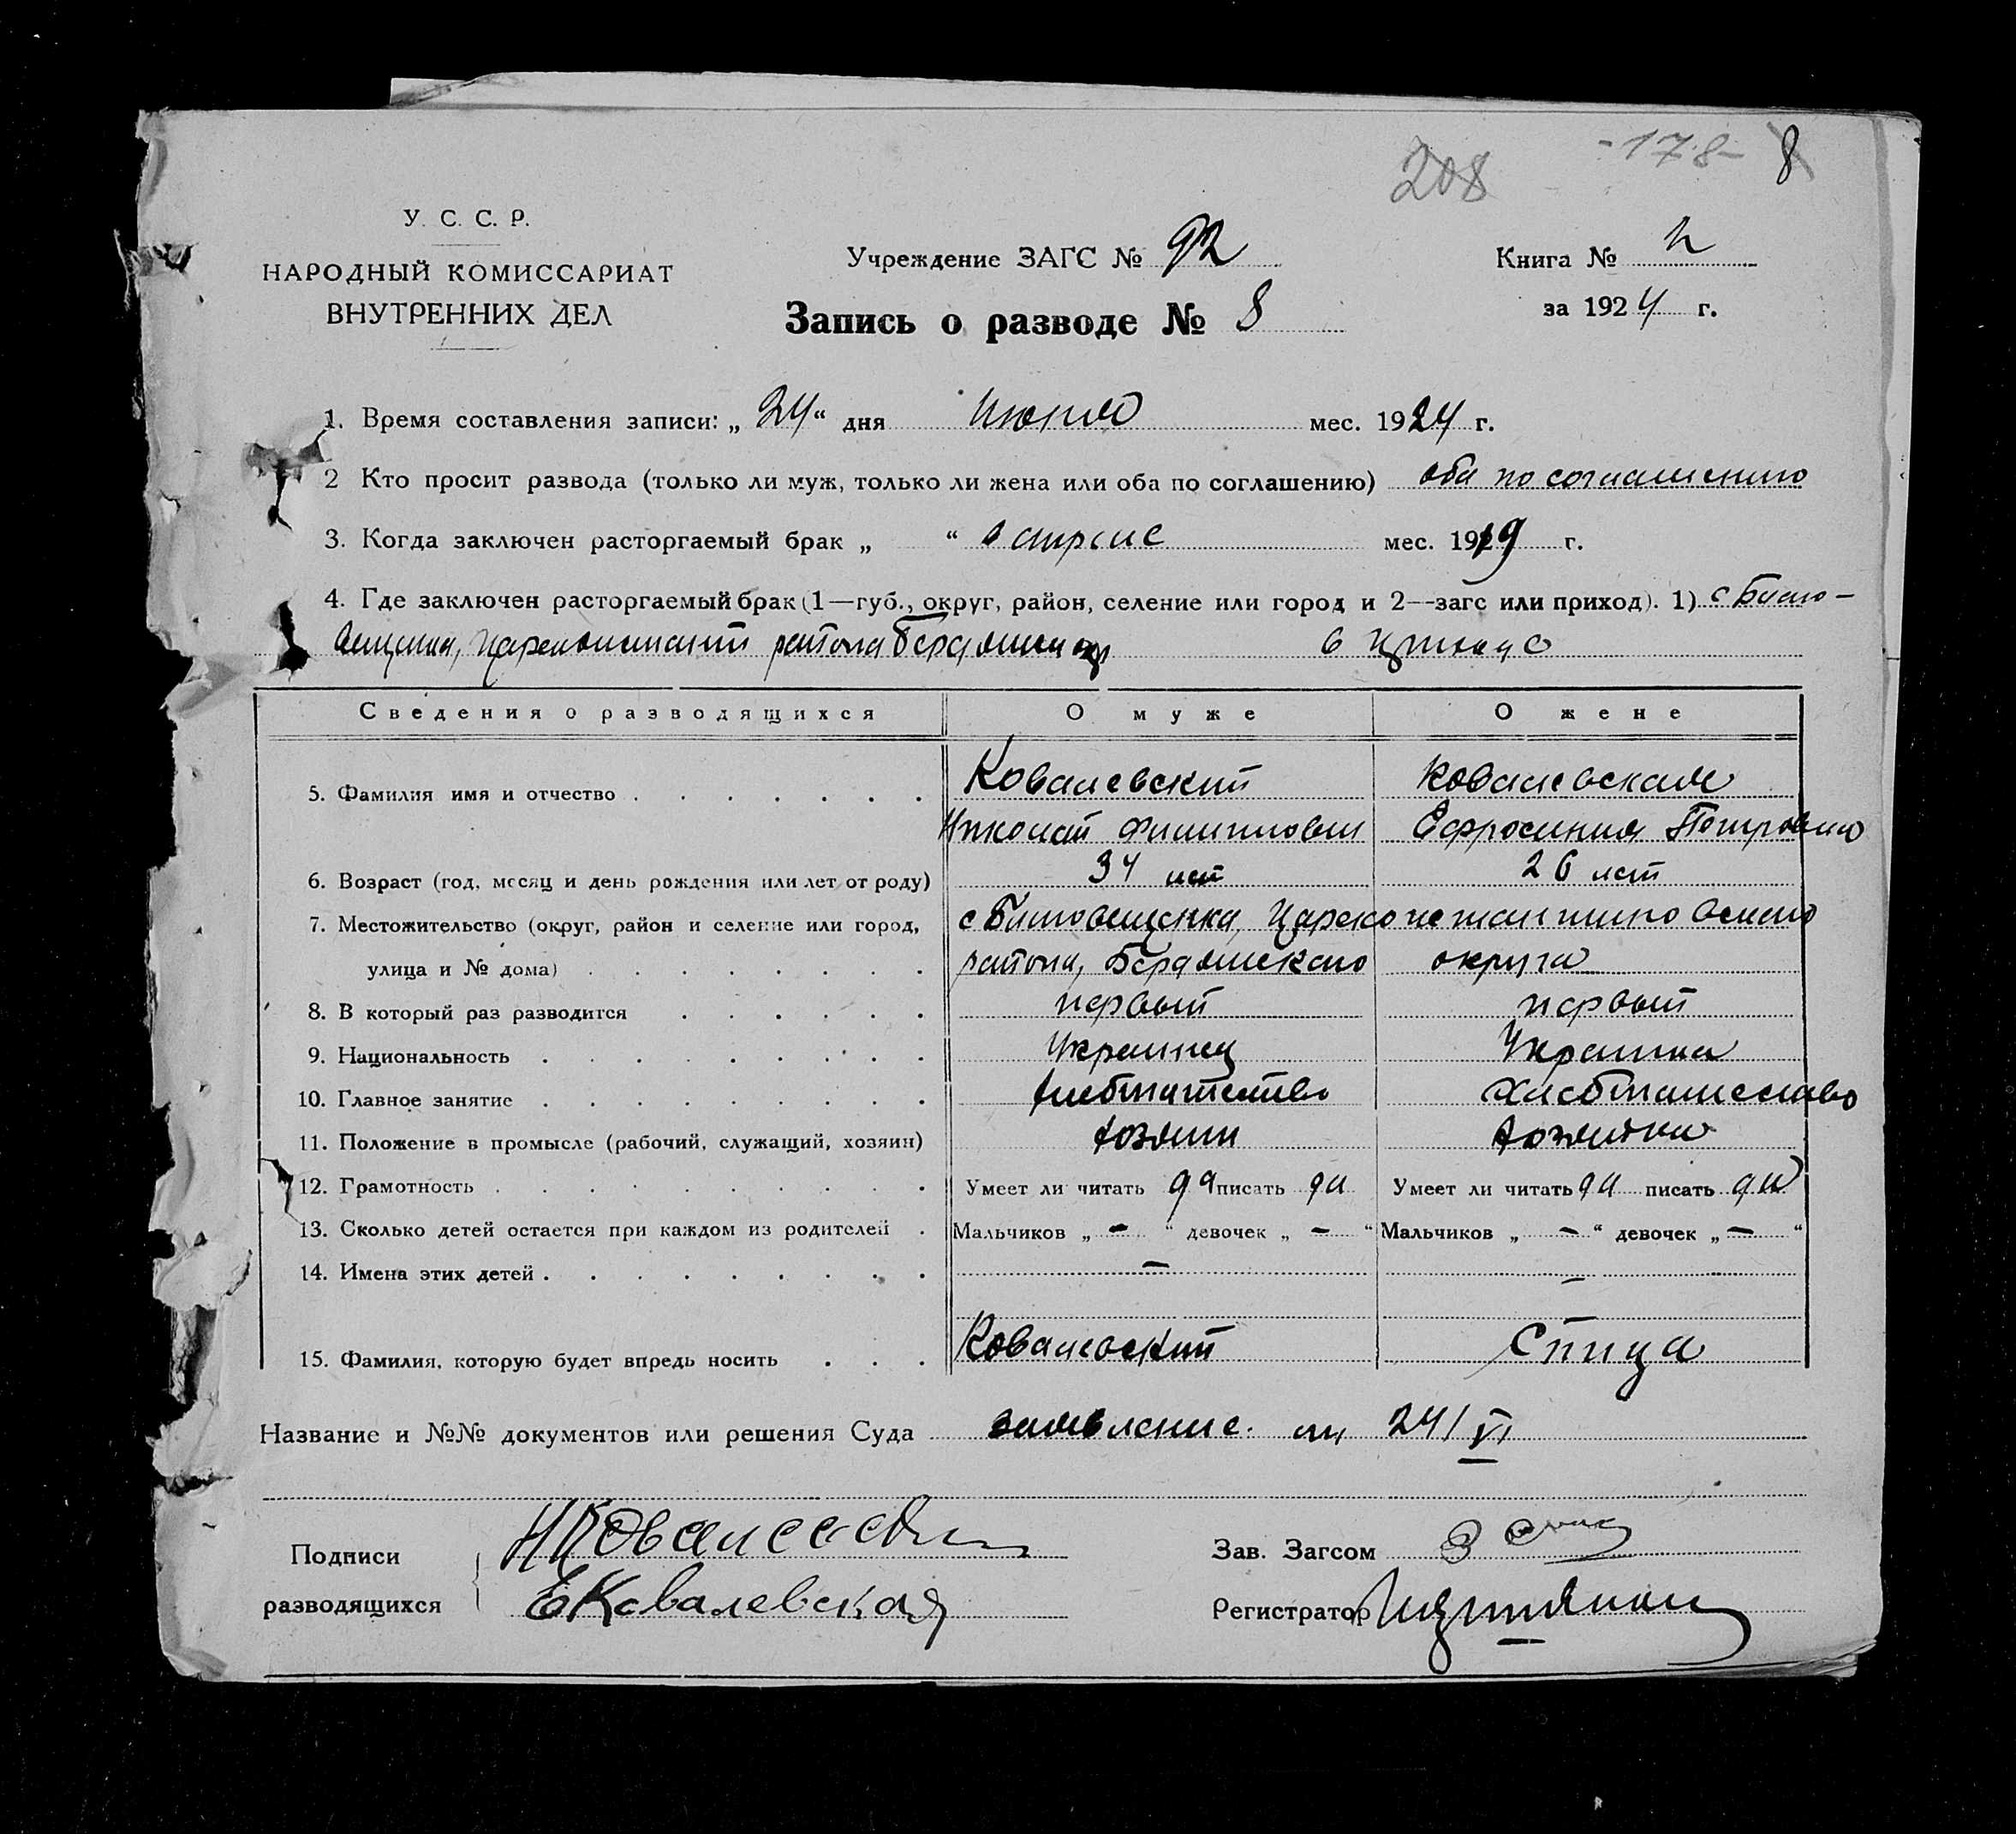 208 -178- 8
У. С. С. Р.
НАРОДНЫЙ КОМИССАРИАТ
ВНУТРЕННИХ ДЕЛ
Учреждение ЗАГС № 92
Запись о разводе № 8
Книга №
за 1924 г.
1. Время составления записи: „ 24 “ дня июня мес. 1924 г.
2 Кто просит развода (только ли муж, только ли жена или оба по соглашению) оба по соглашению
3. Когда заключен расторгаемый брак „ “ апреле мес. 1919 г.
4. Где заключен расторгаемый брак (1—губ., округ, район, селение или город и 2—загс или приход). 1) с
района
Сведения о разводящихся О муже О жене
5. Фамилия имя и отчество Ковалевский Ковалевская
Николай Филиппович Ефросиния Петровна
6. Возраст (год, месяц и день рождения или лет от роду) 34 лет 26 лет
7. Местожительство (округ, район и селение или город, с Цареконстантиновского
улица и № дома) района, Бердянского округа
8. В который раз разводится первый первый
9. Национальность Украинец Украинка
10. Главное занятие хлебопашество хлебопашество
11. Положение в промысле (рабочий, служащий, хозяин) хозяин хозяйка
12. Грамотность Умеет ли читать да писать да Умеет ли читать да писать да
13. Сколько детей остается при каждом из родителей Мальчиков „ — “ девочек „ — “ Мальчиков „ — “ девочек „ — “
14. Имена этих детей — —
15. Фамилия, которую будет впредь носить Ковалевский Спица
Название и №№ документов или решения Суда заявление от 24/VI
Подписи НКовалевский
разводящихся ЕКовалевская
Зав. Загсом
Регистратор